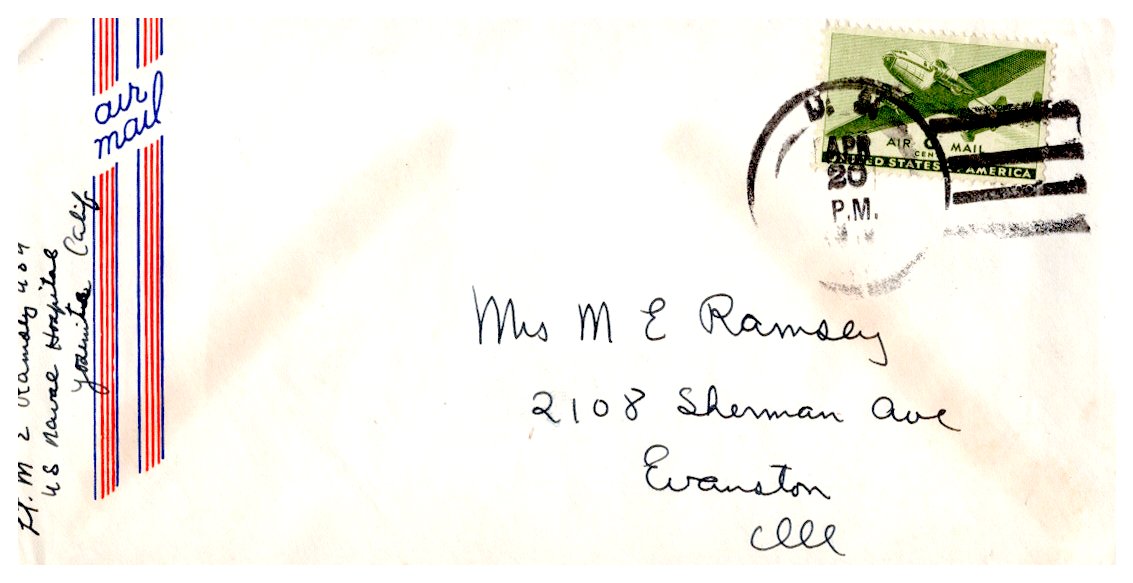 air
mail
Lt. M L Ramsey 404
US Naval Hospital
Yosemite Calif
U. S.
APR
20
P.M.
AIR MAIL
CENTS
UNITED STATES OF AMERICA
Mrs M E Ramsey
2108 Sherman Ave
Evanston
Ill